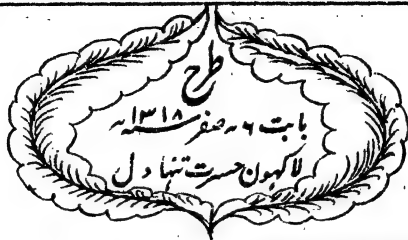 طرح
بابت ۶ صفر ۱۳۱۸ ھ
لاکہون حسرت تنہا دل